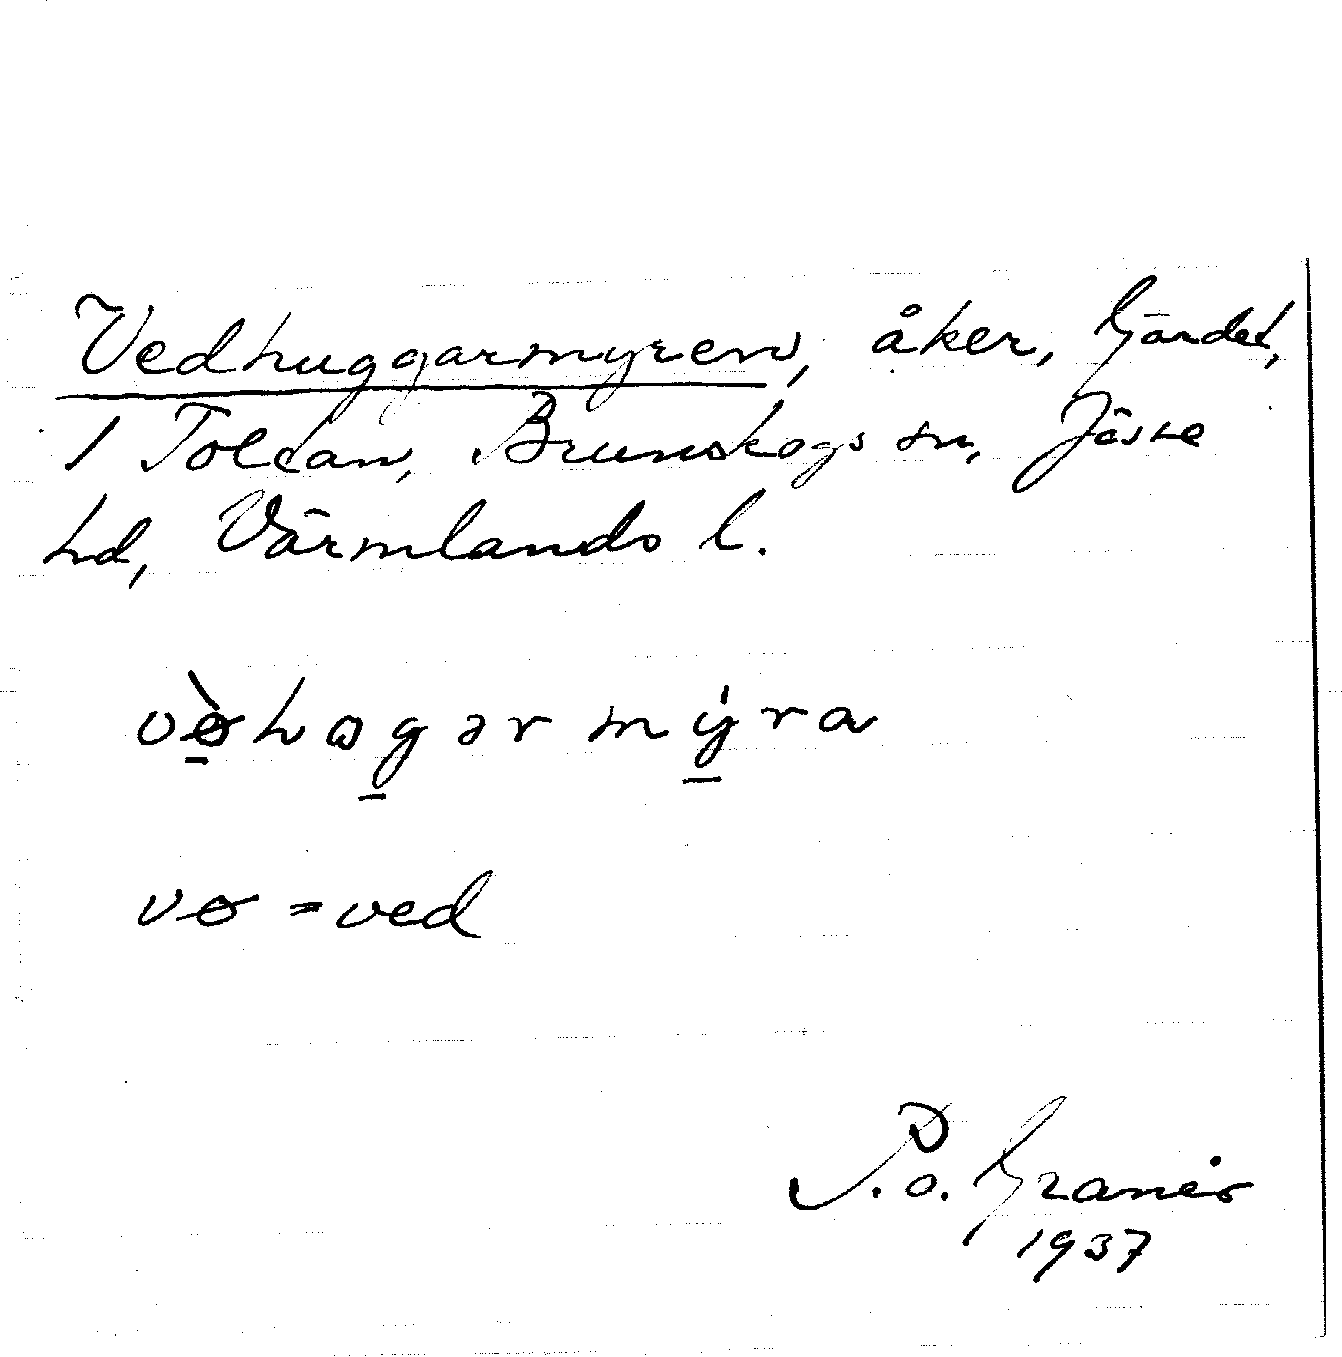 Vedhuggarmyren, åker, Gärdet,
1 Tolean, Brunskogs sn, Jösse
hd, Värmlands l.
vø̀hɷgərmýra
vø = ved
P. O. Granér
1937